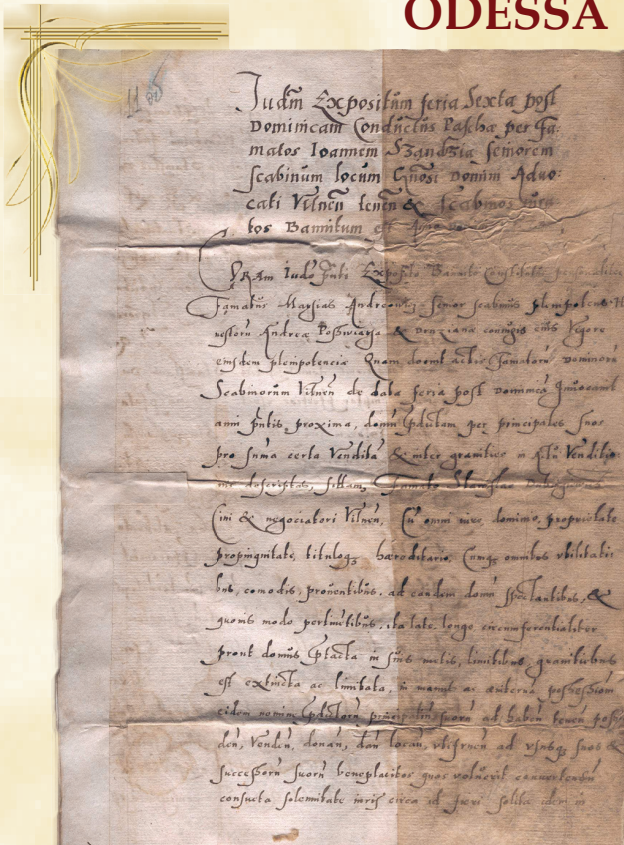 ODESSA
11
Judm Expositum feria Sexta post
Dominicam Conductus Paschæ per Fa:
matos Ioannem Szandzia semorem
scabinum locum Gnosi Domini Aduo:
cati Vilnen tenen & scabinos iura
tos Bannitum est
Coram Iudo Pnti Exposito Bannito
Famatus Andreowicz senior scabinus plenipotens
Andreæ & coniugis eius Vigore
eiusdem plenipotenciæ Quam docuit actis Famatorū Dominorū
Scabinorum Vilnen de data feria post Dominicā Inuocauit
anni Pntis proxima, domū Pdictam per principales suos
pro sūma certa Venditā & inter granities in
descriptas, sittam, Famato Stanislao
Ciui & negociatori Vilnen, Cū omni iure, dominio, proprietate
propinquitate, tituloq₃ hæreditario, Cumq₃ omnibus vtilitati
bus, comodis, prouentibus, ad eandem domū spectantibus, &
quouis modo pertinētibus, ita late, longe circumferentialiter
prout domus Ptacta in suis metis, limitibus, granitiebus
est extincta ac limitata, in manus ac æuiterna possessiom
eidem nomine Pdictorū principaliū suorū ad habēn tenen
den, Venden, donan, dan locan, vtifruen ad vsusq₃ suos &
successorū suorū beneplacitos quos voluerit conuertendū
consueta solemnitate iuris circa id fieri solita